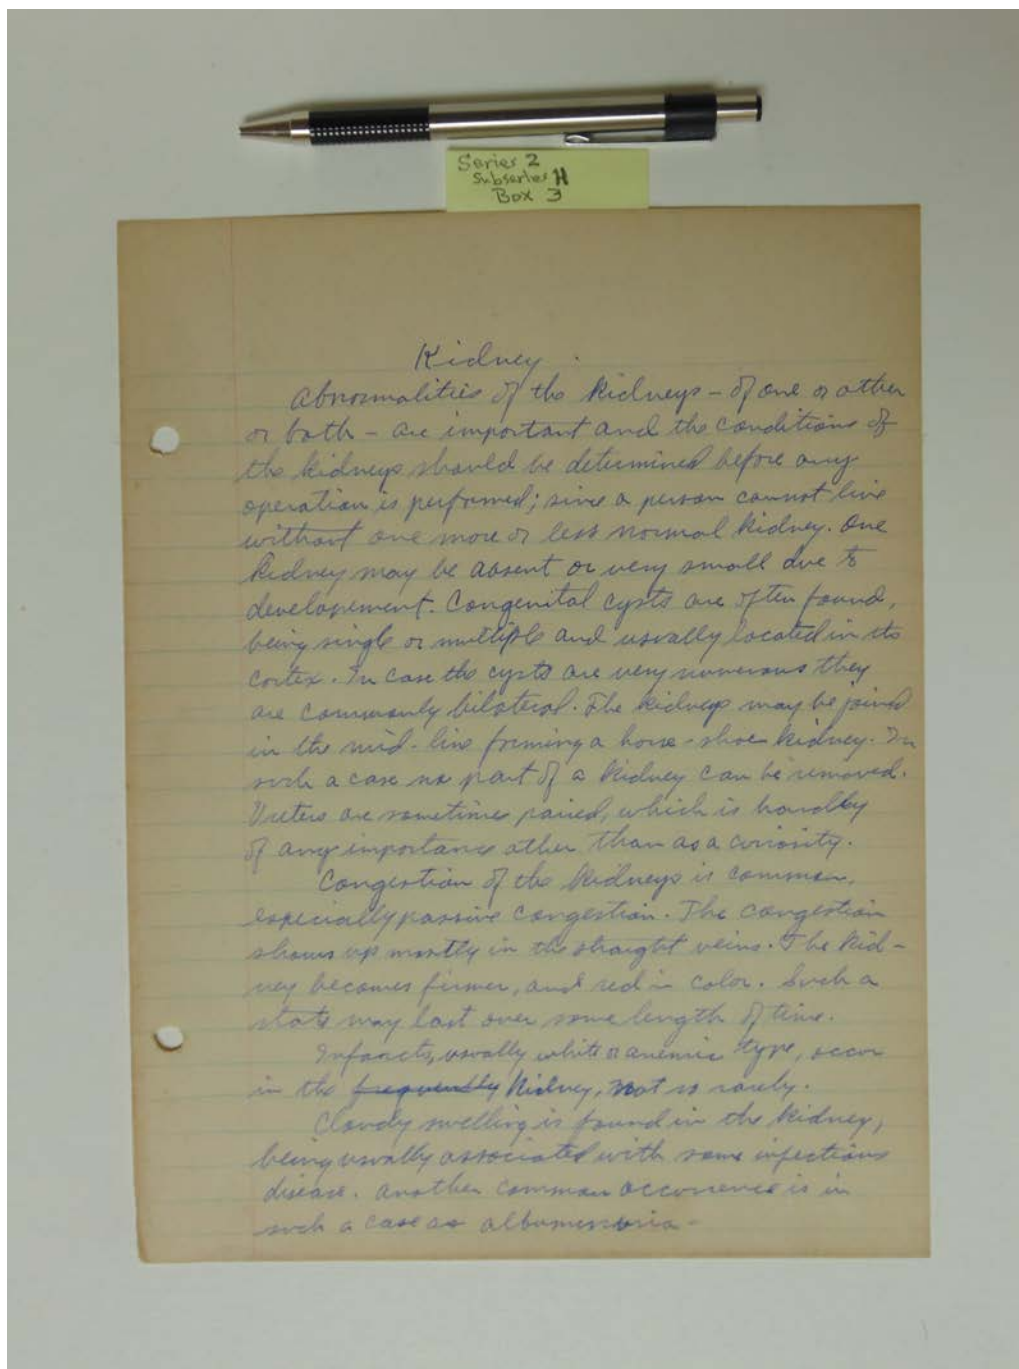 Series 2
Subseries H
Box 3
Kidney.
Abnormalities of the kidneys - of one or other
or both - are important and the conditions of
the kidneys should be determined before any
operation is performed; since a person cannot live
without one more or less normal kidney. One
kidney may be absent or very small due to
developement. Congenital cysts are often found,
being single or multiple and usually located in its
cortex. In case the cysts are very numerous they
are commonly bilateral. The kidneys may be joined
in the mid-line forming a horse-shoe kidney. In
such a case no part of a kidney can be removed.
Ureters are sometimes paired, which is hardley
of any importance other than as a curiosity.
Congestion of the kidneys is common,
especially passive congestion. The congestion
shows up mostly in the straight veins. The kid-
ney becomes firmer, and red in color. Such a
state may last over some length of time.
Infarcts, usually white or anemic type, occur
in the frequently kidney, not so rarely.
Cloudy swelling is found in the kidney,
being usually associated with some infectious
disease. Another common occurrence is in
such a case as